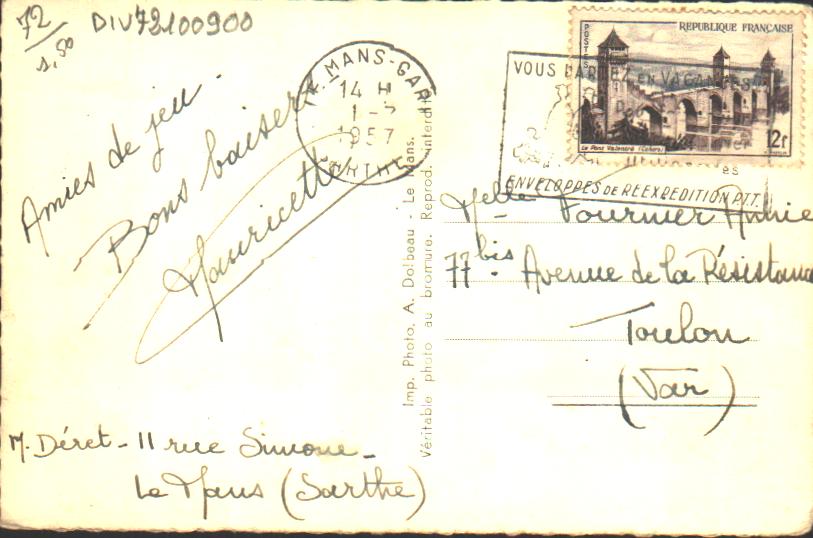 72
1,50
DIV72100900
Amies de jeu.
Bons baisers
Mauricette
M. Déret - 11 rue Simone -
Le Mans (Sarthe)
LE MANS-GARE
14 H
1 - 7
1957
SARTHE
Imp. Photo, A. Dolbeau - Le Mans.
Véritable photo au bromure. Reprod. interdite
REPUBLIQUE FRANÇAISE
POSTES
Le Pont Valentré (Cahors)
12f
VOUS PARTEZ EN VACANCES
ENVELOPPES DE REEXPEDITION P.T.T.
Melle Fournier Annie
77 bis. Avenue de la Résistance
Toulon
(Var)